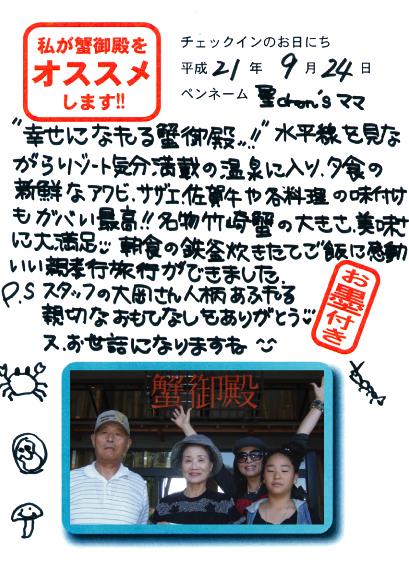 私が蟹御殿を
オススメ
します!!
チェックインのお日にち
平成 21 年 9 月 24 日
ペンネーム 聖chan'sママ
"幸せになれる蟹御殿..!!" 水平線を見な
がらリゾート気分満載の温泉に入り、夕食の
新鮮なアワビ、サザエ、佐賀牛や各料理の味付け
もがバい最高!! 名物竹崎蟹の大きさ、美味さ
に大満足 朝食の鉄釜炊きたてご飯に感動
いい親孝行旅行ができました。
P.S スタッフの大岡さん人柄あふれる
親切なおもてなしをありがとう
又、お世話になりますね
お墨付き
蟹御殿